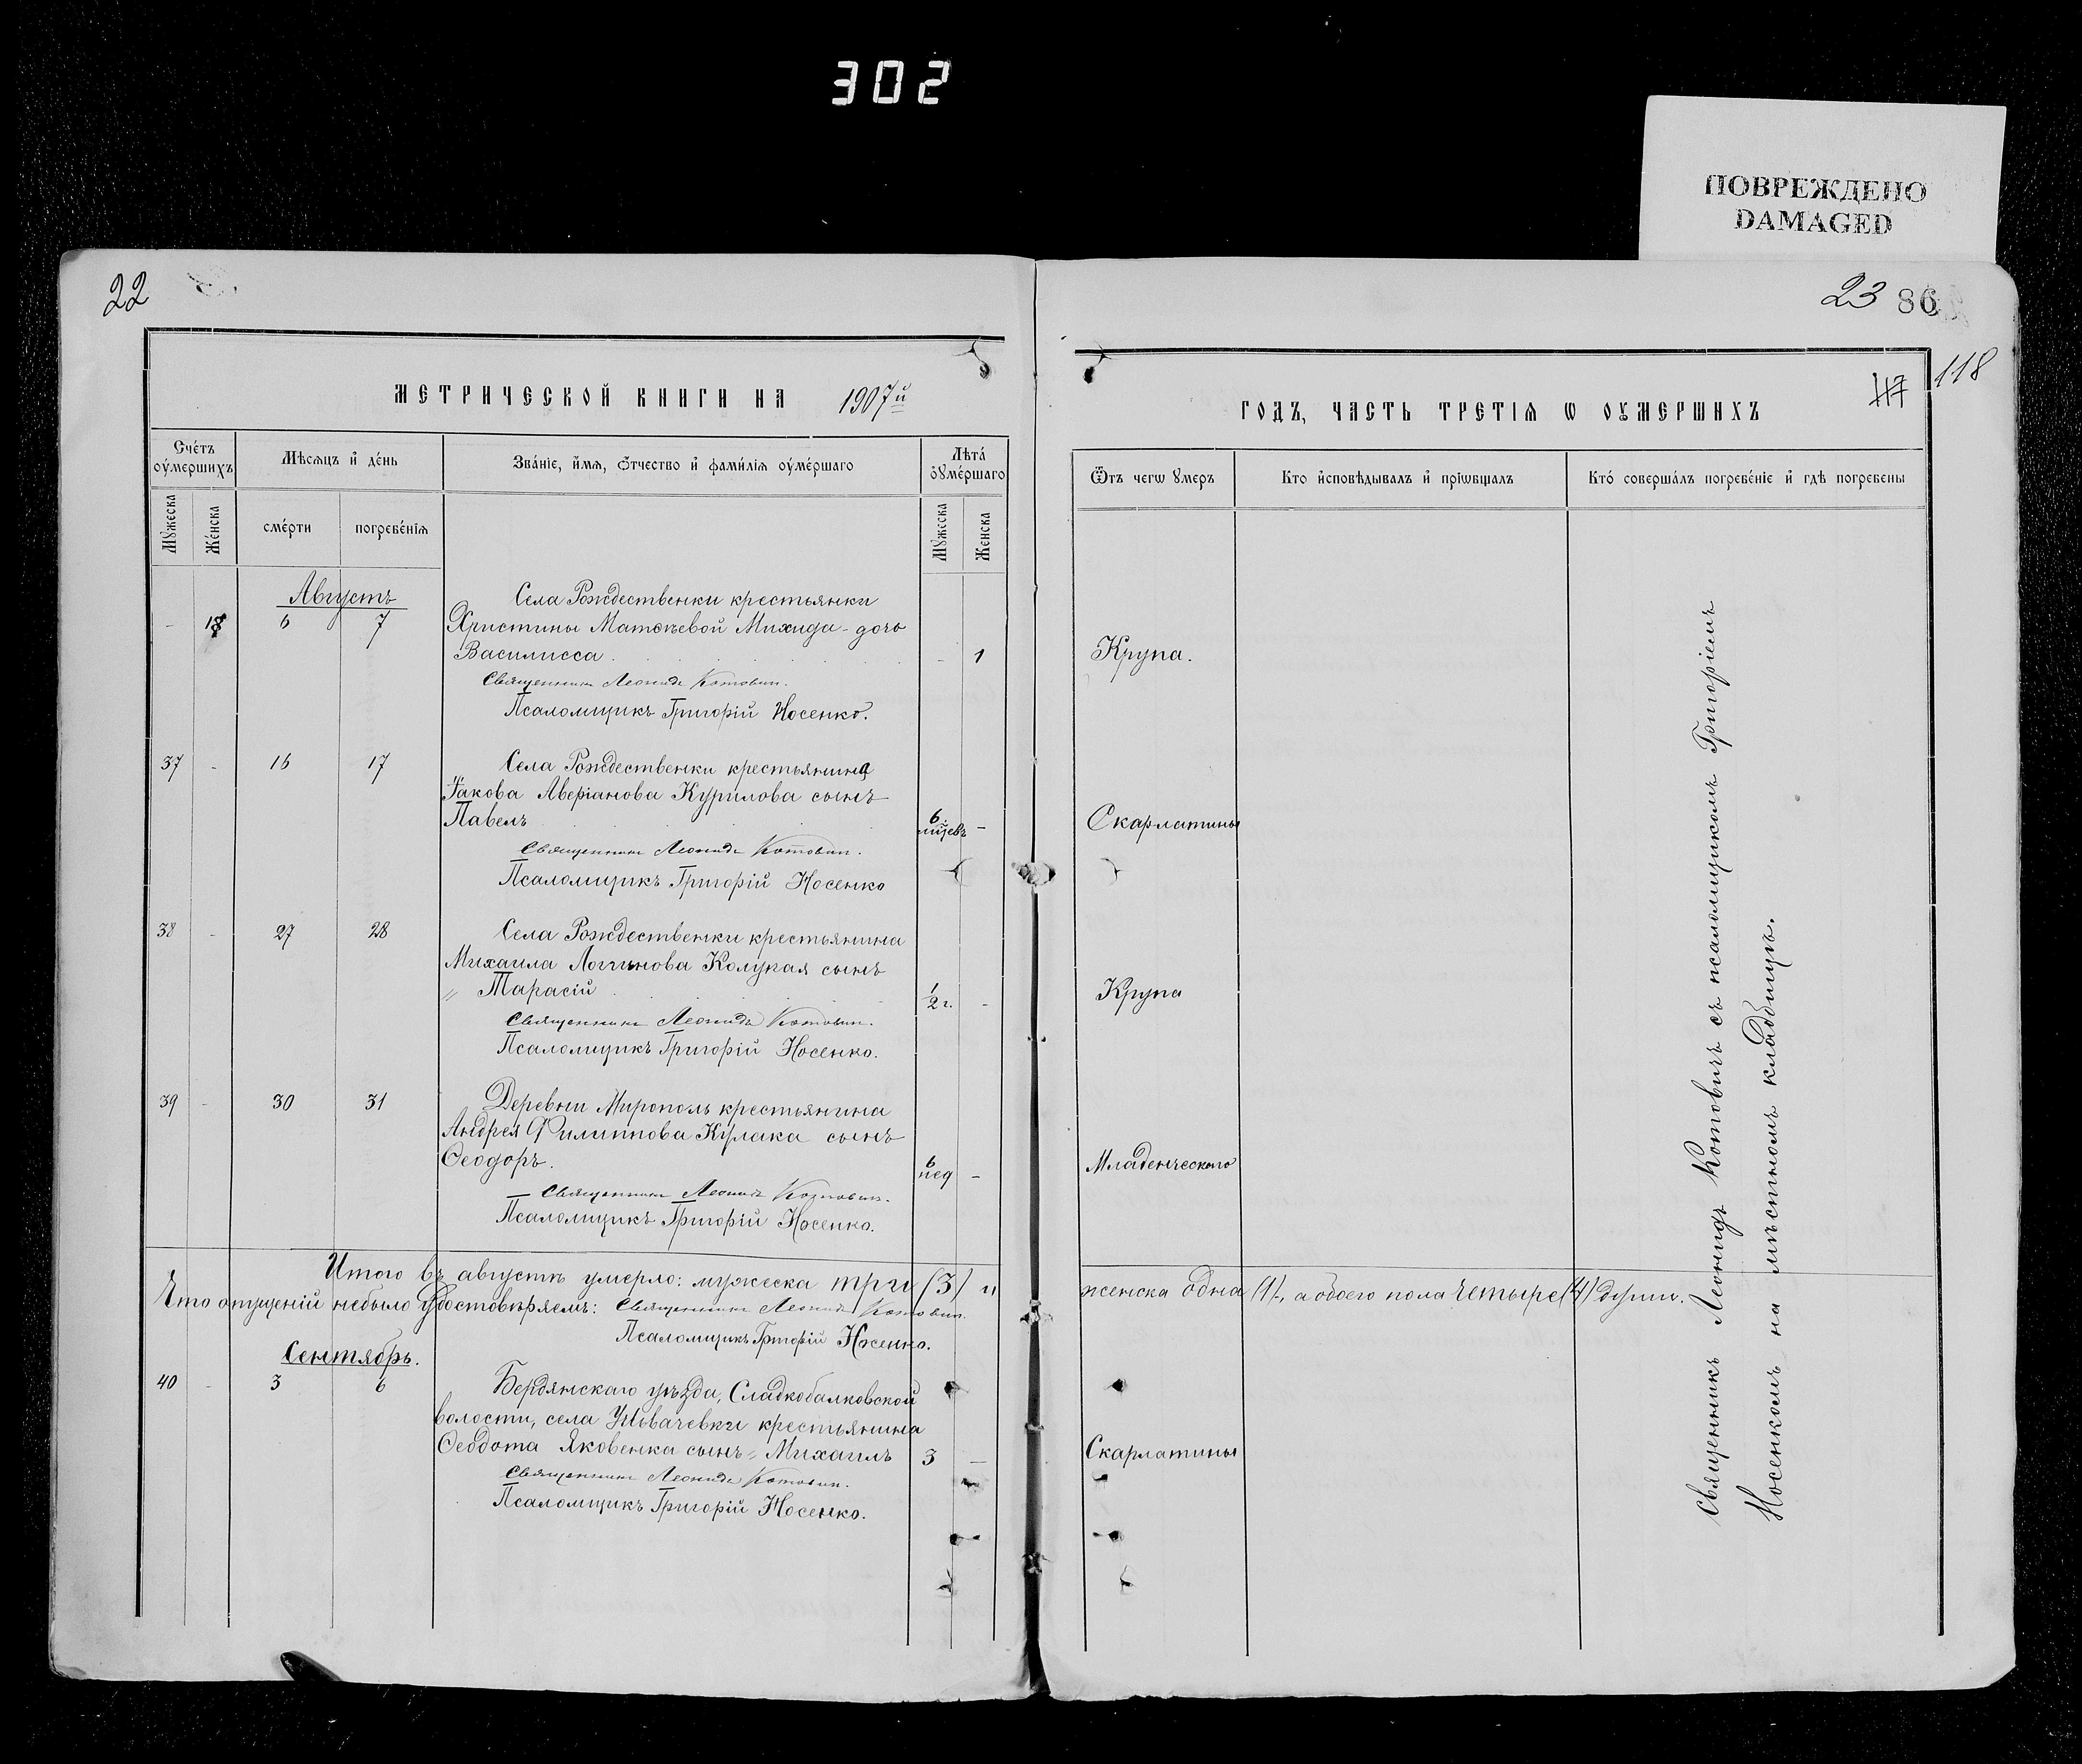 302
ПОВРЕЖДЕНО
DAMAGED
22
МЕТРИЧЕСКОЙ КНИГИ НА 1907й
Счетъ оумершихъ
Мѣсяцъ и день
Званіе, имя, отчество и фамилія оумершаго
Лѣта оумершаго
Мужеска
Женска
смерти
погребенія
Мужеска
Женска
Августъ
Села Рождественки крестьянки
- 6 7 Христины Матѳѣевой Михида - дочь
Василисса - 1
Священникъ Леонидъ Котовичъ.
Псаломщикъ Григорій Носенко.
37 - 16 17 Села Рождественки крестьянина
Іакова Аверіанова Курилова сынъ
Павелъ 6 мѣсяцевъ -
Священникъ Леонидъ Котовичъ.
Псаломщикъ Григорій Носенко
38 - 27 28 Села Рождественки крестьянина
Михаила Логгинова Колупая сынъ
" Тарасій 1/2 г. -
Священникъ Леонидъ Котовичъ.
Псаломщикъ Григорій Носенко.
39 - 30 31 Деревни Мирополь крестьянина
Андрея Филиппова Кулака сынъ
Ѳеодоръ. 6 нед -
Священникъ Леонидъ Котовичъ.
Псаломщикъ Григорій Носенко.
Итого въ августѣ умерло: мужеска три (3) и
Что опущеній небыло удостовѣряемъ: Священникъ Леонидъ Котовичъ.
Псаломщикъ Григорій Носенко.
Сентябрь.
40 - 3 6 Бердянскаго уѣзда, Сладкобалковской
волости, села крестьянина
Ѳеодота Яковенка сынъ " Михаилъ 3 -
Священникъ Леонидъ Котовичъ.
Псаломщикъ Григорій Носенко.
23 86
118
117
ГОДЪ, ЧАСТЬ ТРЕТІЯ Ѡ ОУМЕРШИХЪ
Ѿтъ чегѡ умеръ
Кто исповѣдывалъ и пріѡбщалъ
Кто совершалъ погребеніе и гдѣ погребены
Крупа.
Скарлатины
Крупа
Младенческаго
женска одна (1), а обоего пола четыре (4) души.
Скарлатины
Священникъ Леонидъ Котовичъ съ псаломщикомъ Григоріемъ
Носенкомъ на мѣстномъ кладбищѣ.